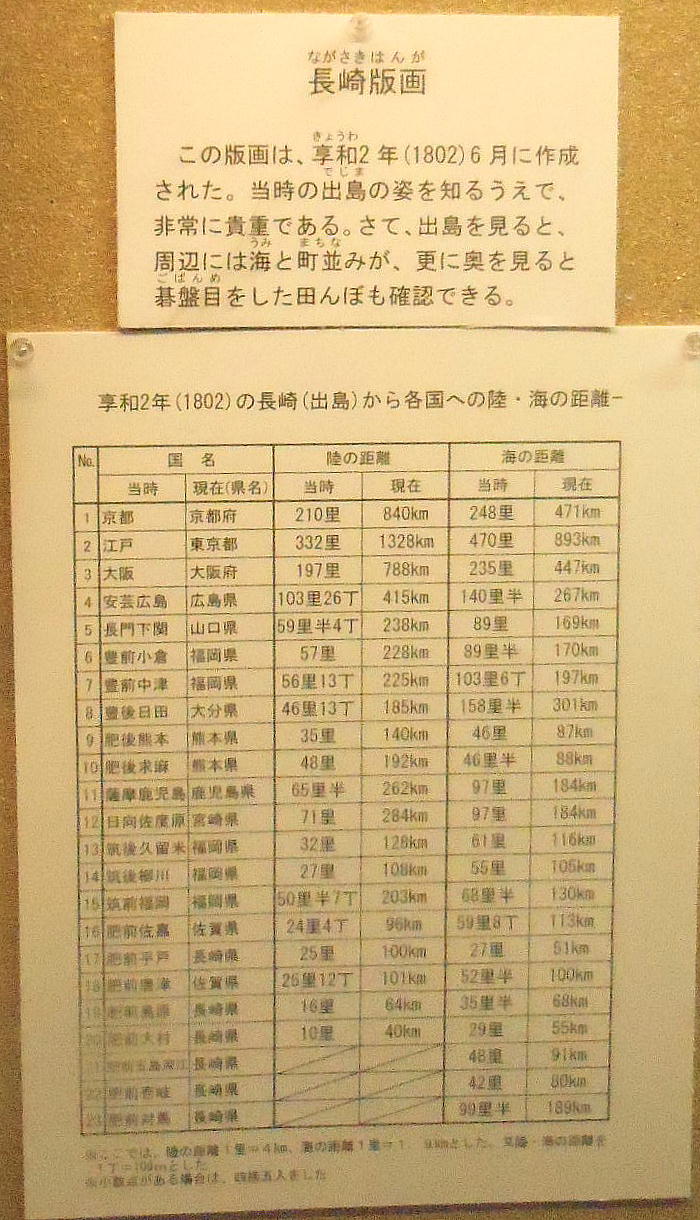 ながさきはんが
長崎版画
きょうわ
この版画は、享和2年(1802)6月に作成
でじま
された。当時の出島の姿を知るうえで、
非常に貴重である。さて、出島を見ると、
うみ まちな
周辺には海と町並みが、更に奥を見ると
ごばんめ
碁盤目をした田んぼも確認できる。
享和2年(1802)の長崎(出島)から各国への陸・海の距離-
No. 国名 陸の距離 海の距離
当時 現在(県名) 当時 現在 当時 現在
1 京都 京都府 210里 840km 248里 471km
2 江戸 東京都 332里 1328km 470里 893km
3 大阪 大阪府 197里 788km 235里 447km
4 安芸広島 広島県 103里26丁 415km 140里半 267km
5 長門下関 山口県 59里半4丁 238km 89里 169km
6 豊前小倉 福岡県 57里 228km 89里半 170km
7 豊前中津 福岡県 56里13丁 225km 103里6丁 197km
8 豊後日田 大分県 46里13丁 185km 158里半 301km
9 肥後熊本 熊本県 35里 140km 46里 87km
10 肥後求麻 熊本県 48里 192km 46里半 88km
11 薩摩鹿児島 鹿児島県 65里半 262km 97里 184km
12 日向佐度原 宮崎県 71里 284km 97里 184km
13 筑後久留米 福岡県 32里 128km 61里 116km
14 筑後柳川 福岡県 27里 108km 55里 105km
15 筑前福岡 福岡県 50里半7丁 203km 68里半 130km
16 肥前佐嘉 佐賀県 24里4丁 96km 59里8丁 113km
17 肥前平戸 長崎県 25里 100km 27里 51km
18 肥前唐津 佐賀県 25里12丁 101km 52里半 100km
19 肥前島原 長崎県 16里 64km 35里半 68km
20 肥前大村 長崎県 10里 40km 29里 55km
21 肥前五島深江 長崎県 48里 91km
22 肥前壱岐 長崎県 42里 80km
23 肥前対馬 長崎県 99里半 189km
※ここでは、陸の距離1里=4km、海の距離1里=1.9kmとした。又陸・海の距離を
1丁=109mとした
※小数点がある場合は、四捨五入をした